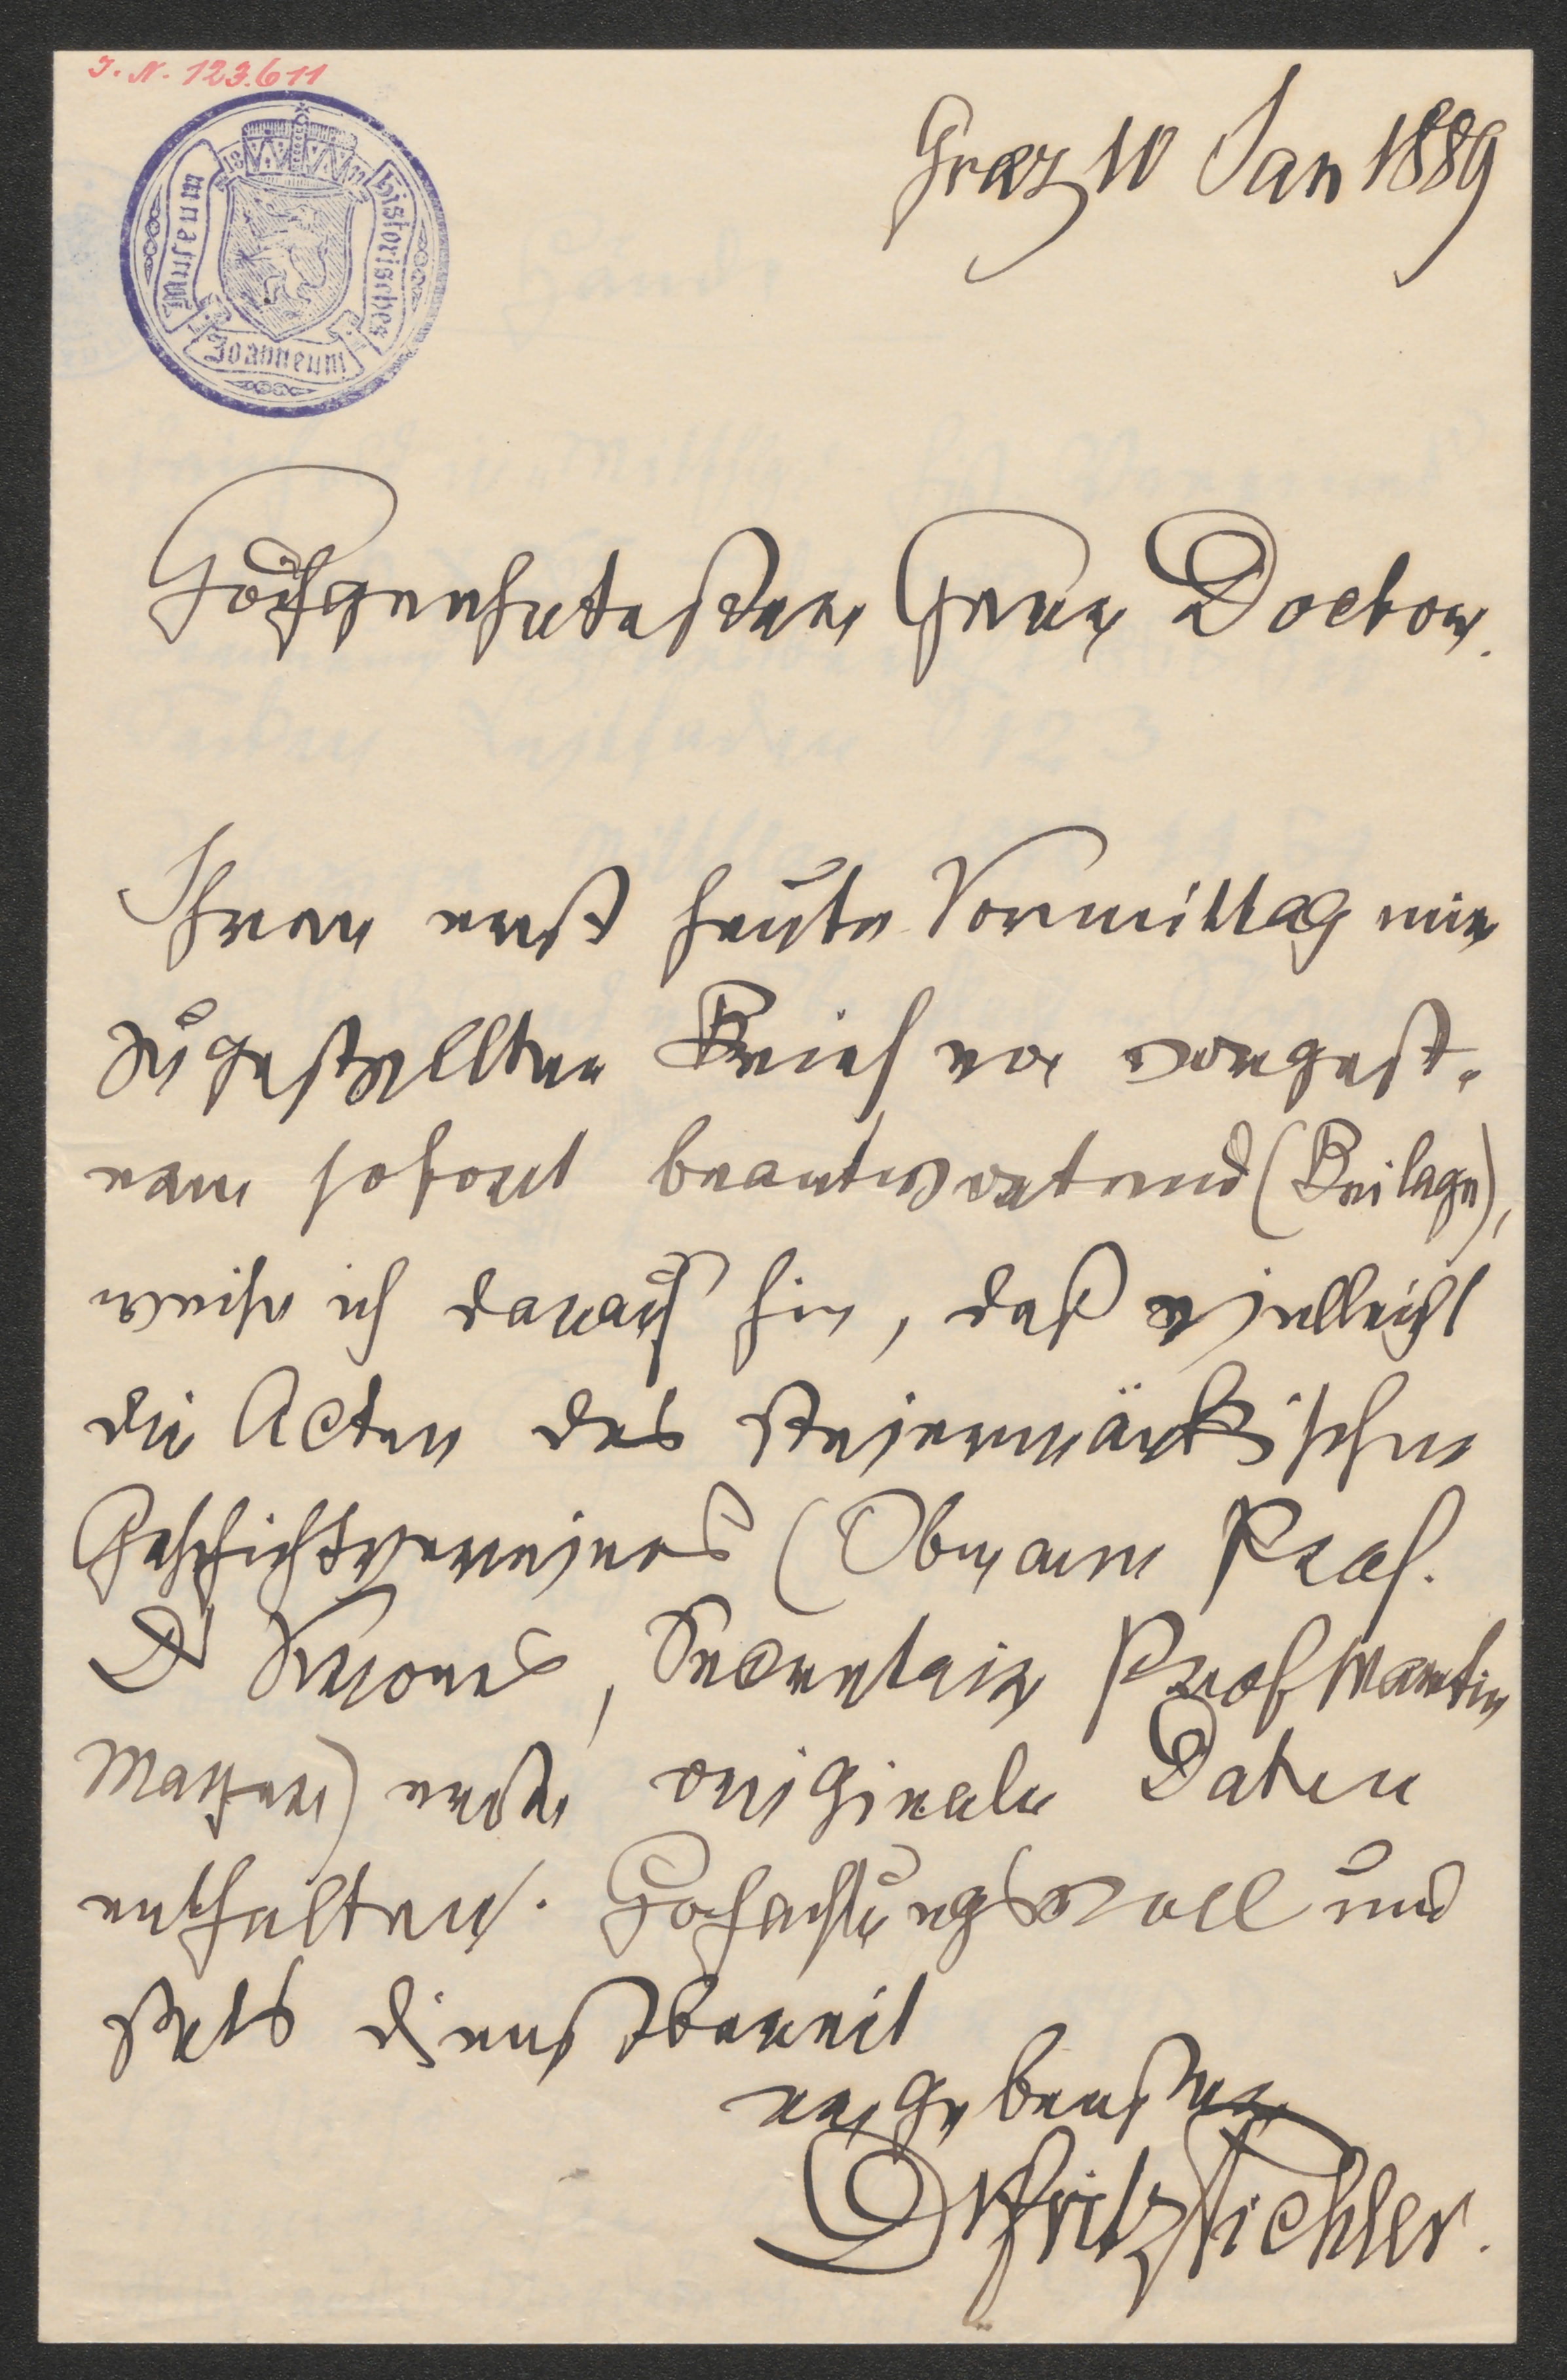 I. N. 123.611
Historisches
Museum
Joanneum
Graz 10 Jan 1889
Hochgeehrtester Herr Doctor.
Ihren erst heute Vormittag mir
zugestellten Brief von vorgest-
ern sofort beantwortend (Beilage),
weise ich darauf hin, daß vielleicht
die Acten des steiermärkischen
Geschichtvereines (Obmann Prof.
Dr Krones, Secretair Prof Martin
Mayer) erste originale Daten
enthalten. Hochachtungsvoll und
stets dienstbereit
ergebenster
Dr Fritz Pichler.